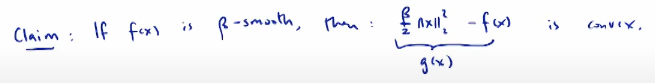 Claim : If f(x) is β-smooth, then : β/2 ||x||₂² - f(x) is convex.
g(x)